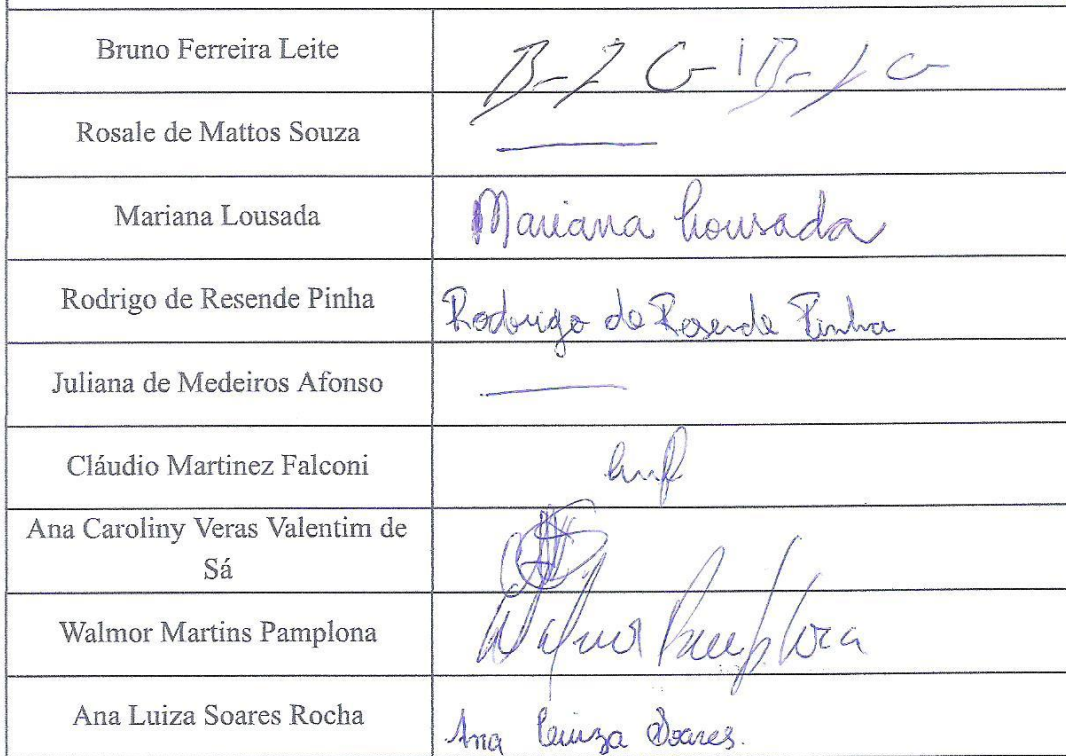 Bruno Ferreira Leite
Rosale de Mattos Souza
Mariana Lousada Mariana Lousada
Rodrigo de Resende Pinha Rodrigo de Resende Pinha
Juliana de Medeiros Afonso
Cláudio Martinez Falconi
Ana Caroliny Veras Valentim de
Sá
Walmor Martins Pamplona Walmor Pamplona
Ana Luiza Soares Rocha Ana Luiza Soares.